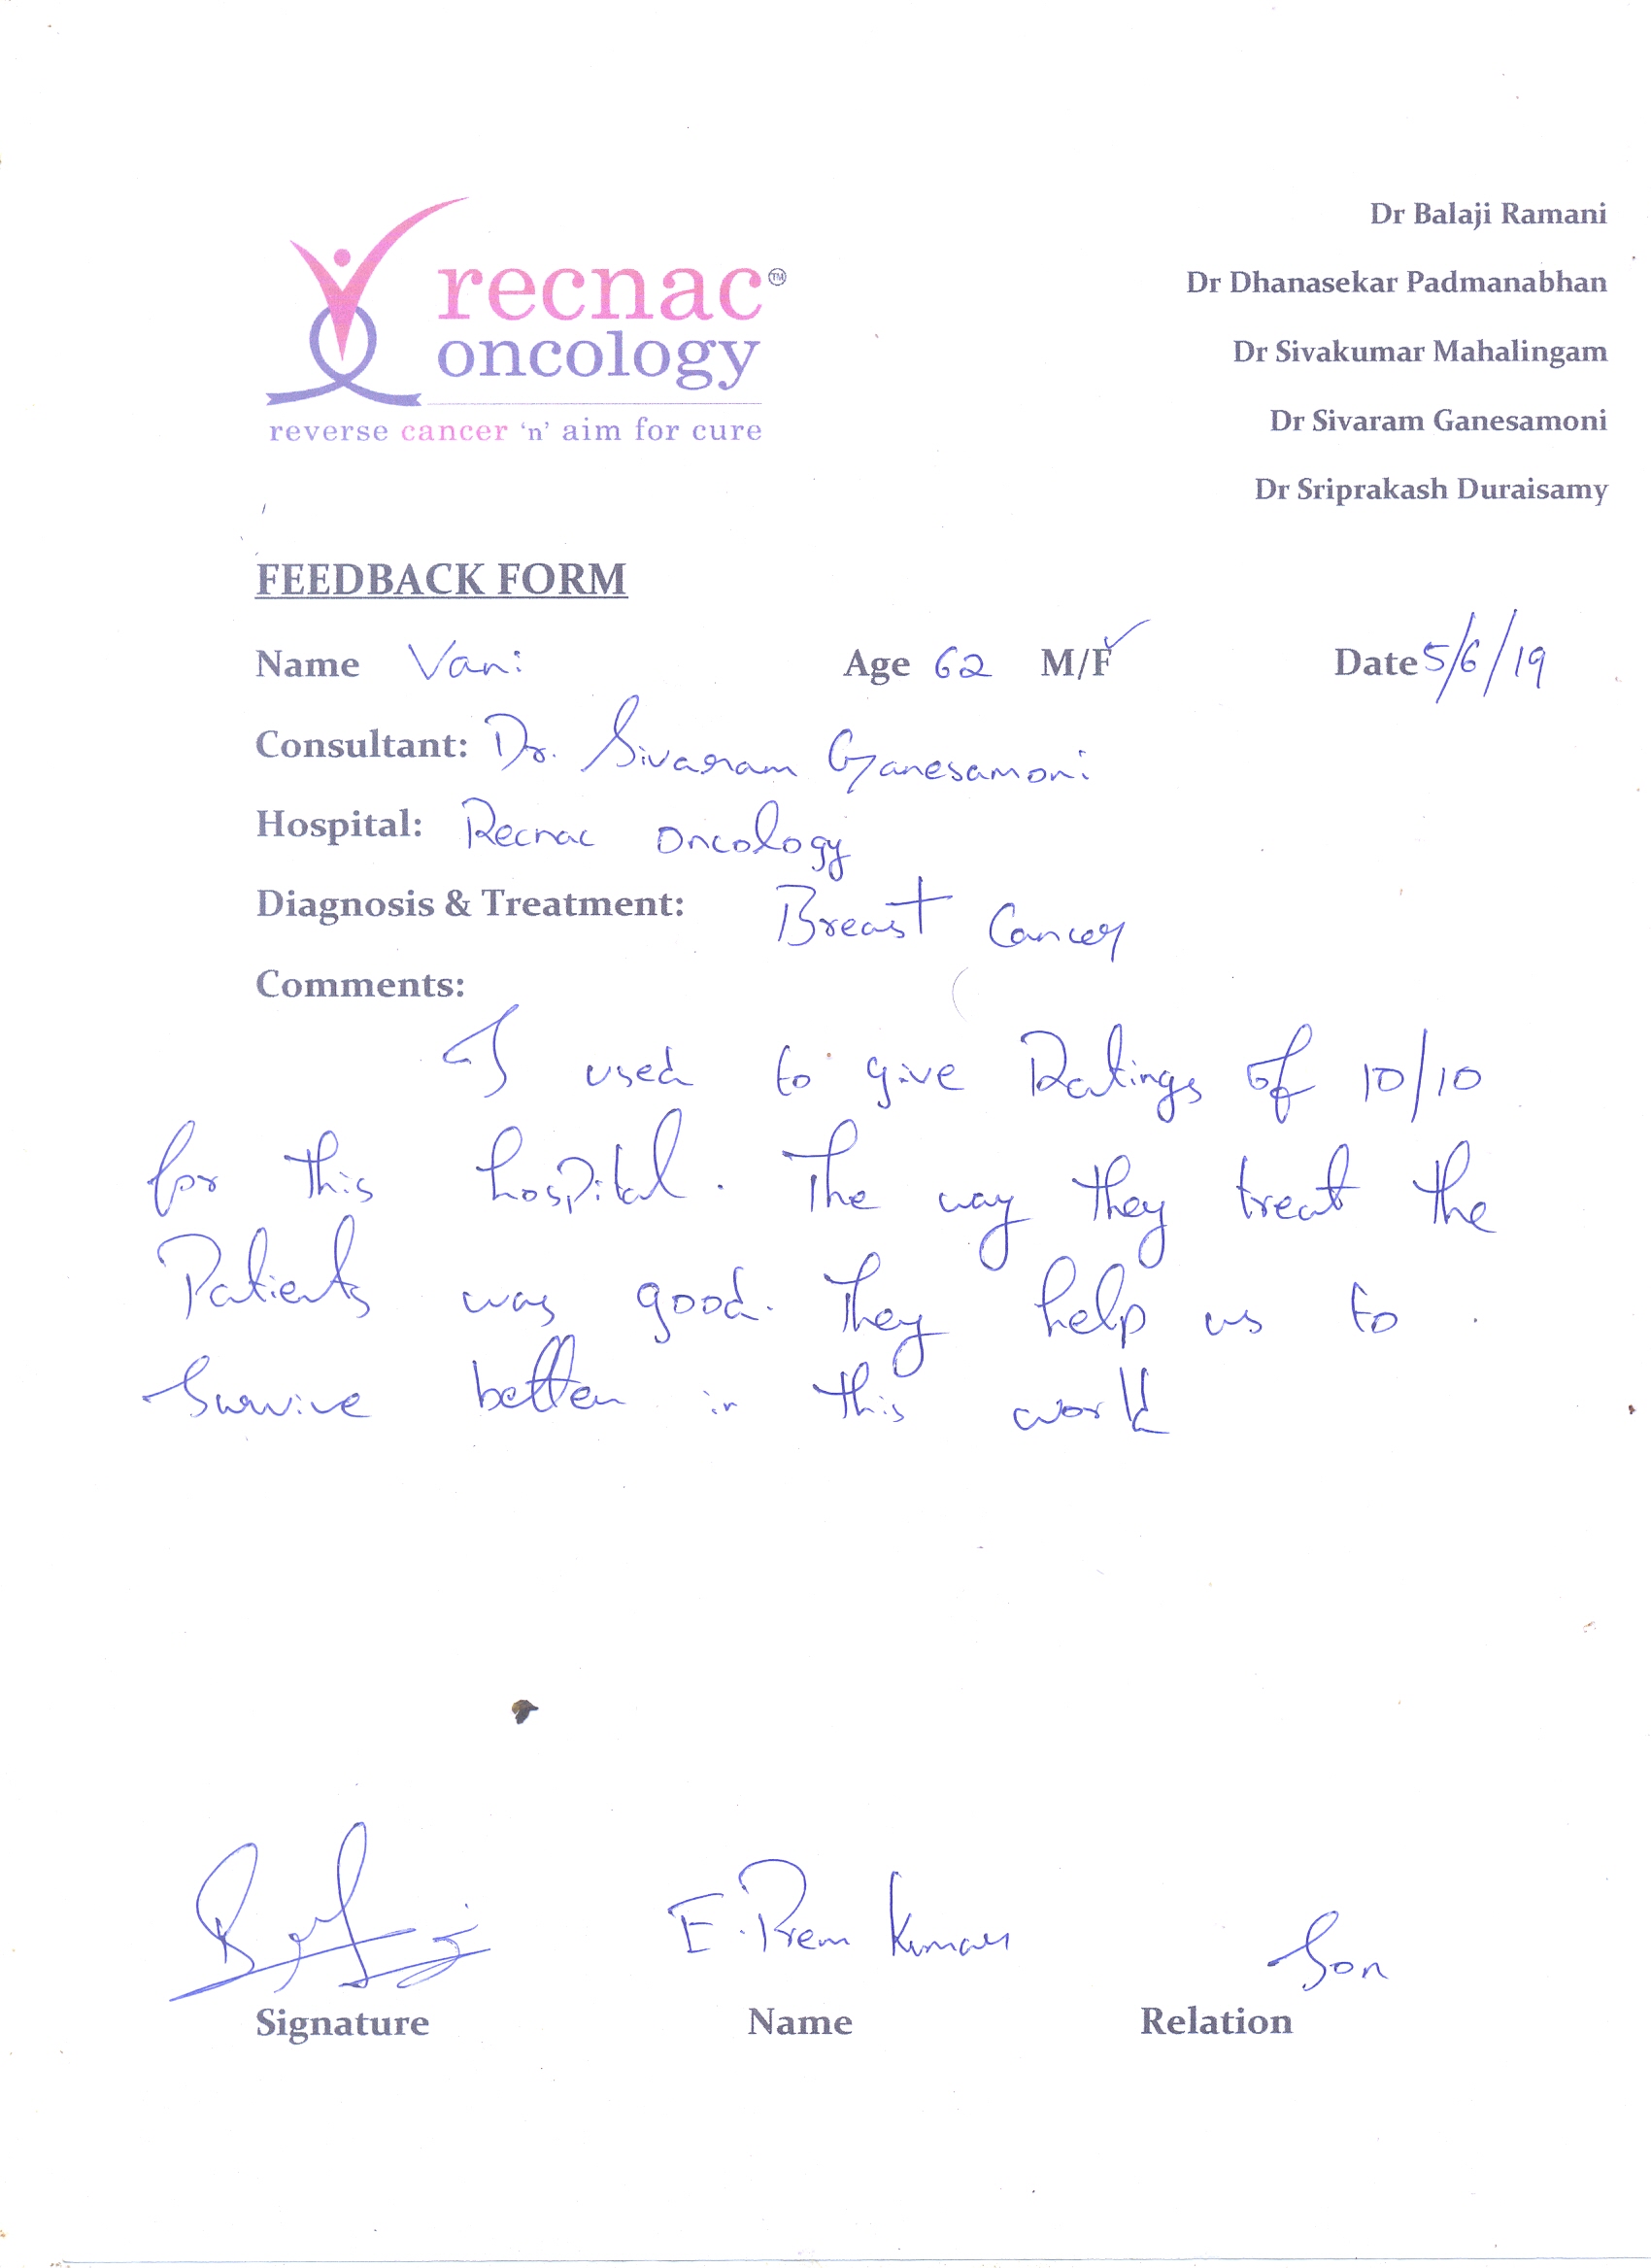 recnac™
oncology
reverse cancer 'n' aim for cure
Dr Balaji Ramani
Dr Dhanasekar Padmanabhan
Dr Sivakumar Mahalingam
Dr Sivaram Ganesamoni
Dr Sriprakash Duraisamy
FEEDBACK FORM
Name Vani Age 62 M/F ✓ Date 5/6/19
Consultant: Dr. Sivaram Ganesamoni
Hospital: Recnac Oncology
Diagnosis & Treatment: Breast Cancer
Comments:
I used to give Ratings of 10/10
for this hospital. The way they treat the
Patients was good. They help us to
Survive better in this world
E. Prem Kumar Son
Signature Name Relation